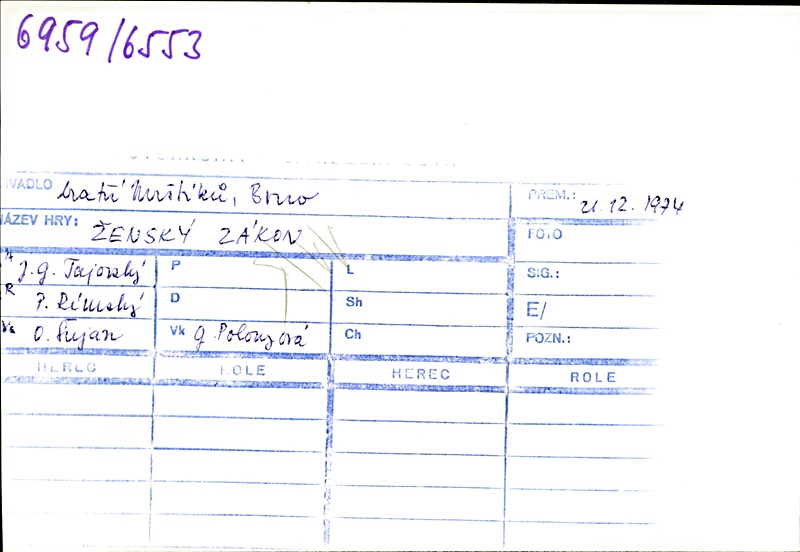 6959/6553
IVADLO bratří Mrštíků, Brno PREM.: 21. 12. 1974
NÁZEV HRY: ŽENSKÝ ZÁKON FOTO
A J. G. Tajovský P L SIG.:
R P. Rímský D Sh E/
O. Šujan Vk G. Polonyová Ch POZN.:
HEREC ROLE HEREC ROLE